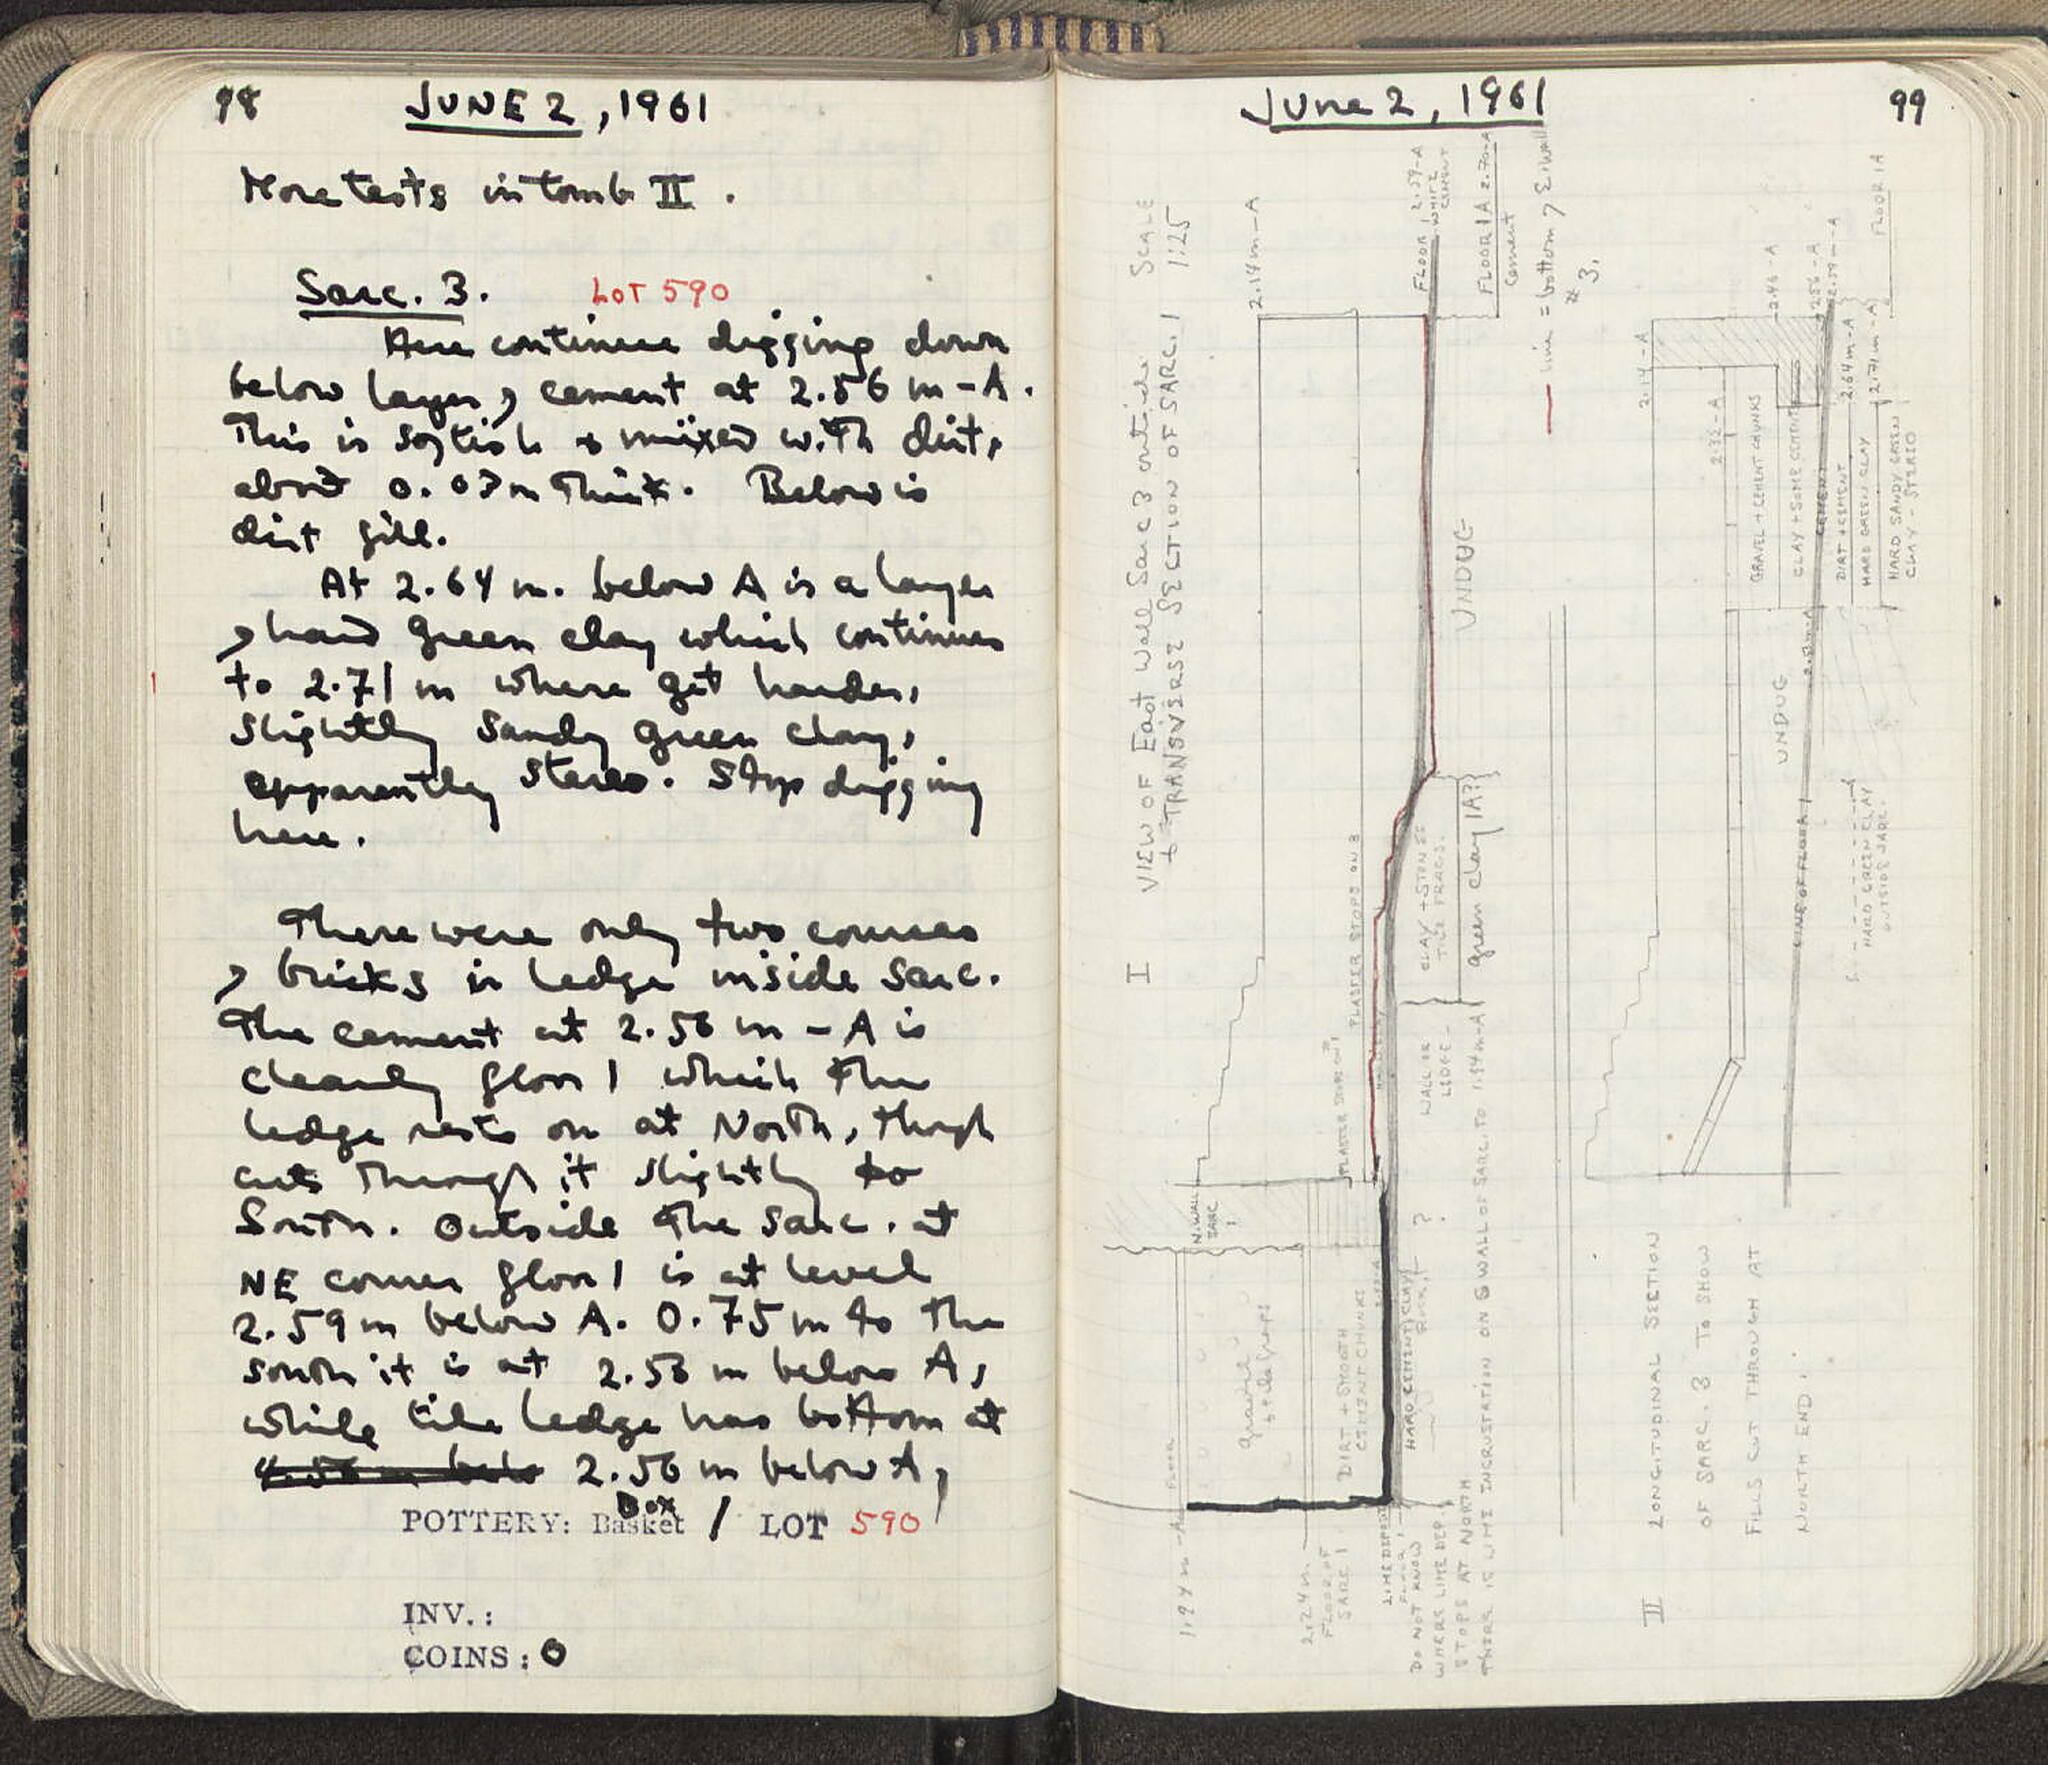 98 JUNE 2, 1961
More tests in tomb II.
Sarc. 3. LOT 590
Here continue digging down
below layer of cement at 2.56 m - A.
This is softish & mixed with dirt,
about 0.03 m thick. Below is
dirt fill.
At 2.64 m. below A is a layer
of hard green clay which continues
to 2.71 m where get harder,
slightly sandy green clay,
apparently stereo. Stop digging
here.
There were only two courses
of bricks in ledge inside sarc.
The cement at 2.56 m - A is
clearly floor 1 which the
ledge rests on at North, though
cuts through it slightly to
South. Outside the sarc. at
NE corner floor 1 is at level
2.59 m below A. 0.75 m to the
south it is at 2.58 m below A,
while tile ledge has bottom at
2.56 m below A,
POTTERY: Basket Box 1 LOT 590
INV.:
COINS: 0
June 2, 1961 99
I VIEW OF East Wall Sarc 3 outside SCALE
& TRANSVERSE SECTION OF SARC. 1 1:25
2.14m-A
FLOOR 1 2.59-A
WHITE
CEMENT
FLOOR 1A 2.70-A
Cement
line = bottom of E. wall
# 3.
UNDUG
PLASTER STOPS ON 3
CLAY + STONES
TILE FRAGS.
green clay 1A??
WALL IS
LEDGE
?
N. WALL
SARC
1
gravel
DIRT + SMOOTH
CEMENT CHUNKS
HARD CEMENT, CLAY
FLOOR
1.94 m - A
2.24 m.
FLOOR OF
SARC 1
DO NOT KNOW
WHERE LIME DEP.
STOPS AT NORTH
THERE IS LIME INCRUSTATION ON S WALL OF SARC. TO 1.94 m-A
II LONGITUDINAL SECTION
OF SARC. 3 TO SHOW
FILLS CUT THROUGH AT
NORTH END.
2.14-A
2.32-A
2.46-A
2.56-A
2.59-A
2.64m-A
2.71m-A
FLOOR 1A
GRAVEL + CEMENT CHUNKS
CLAY + SOME CEMENT
CEMENT
DIRT + CEMENT
HARD GREEN CLAY
HARD SANDY GREEN
CLAY - STEREO
UNDUG
LINE OF FLOOR 1
HARD GREEN CLAY
OUTSIDE SARC.